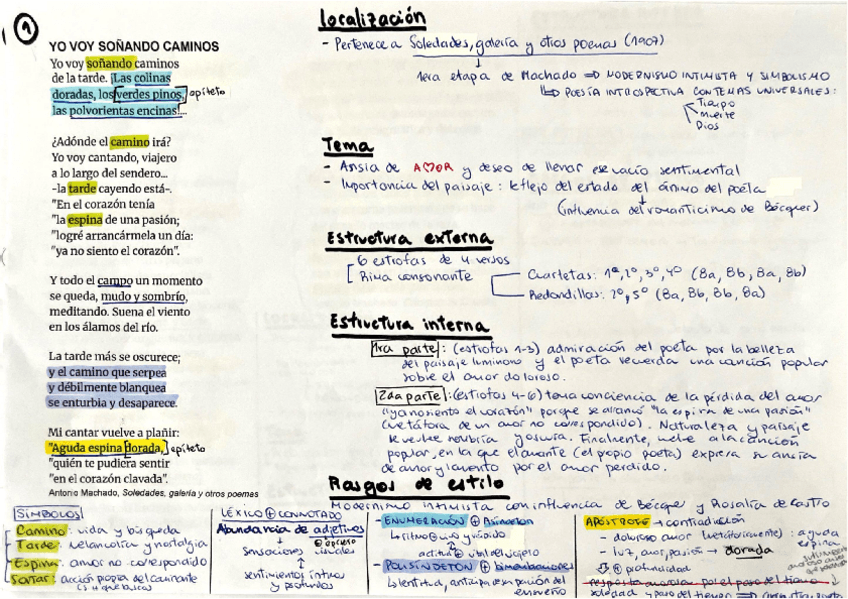 1
YO VOY SOÑANDO CAMINOS
Yo voy soñando caminos
de la tarde. ¡Las colinas
doradas, los verdes pinos, epíteto
las polvorientas encinas!...
¿Adónde el camino irá?
Yo voy cantando, viajero
a lo largo del sendero...
-la tarde cayendo está-.
"En el corazón tenía
"la espina de una pasión;
"logré arrancármela un día:
"ya no siento el corazón".
Y todo el campo un momento
se queda, mudo y sombrío,
meditando. Suena el viento
en los álamos del río.
La tarde más se oscurece;
y el camino que serpea
y débilmente blanquea
se enturbia y desaparece.
Mi cantar vuelve a plañir:
"Aguda espina dorada, epíteto
"quién te pudiera sentir
"en el corazón clavada".
Antonio Machado, Soledades, galería y otros poemas
localización
- Pertenece a Soledades, galería y otros poemas (1907)
1era etapa de Machado ⇒ MODERNISMO INTIMISTA Y SIMBOLISMO
⇒ POESÍA INTROSPECTIVA CON TEMAS UNIVERSALES:
Tiempo
Muerte
Dios
Tema
- Ansia de AMOR y deseo de llenar ese vacío sentimental
- Importancia del paisaje: reflejo del estado del ánimo del poeta
(influencia del romanticismo de Bécquer)
Estructura externa
6 estrofas de 4 versos
Rima consonante
Cuartetas: 1ª, 2º, 3º, 4º (8a, 8b, 8a, 8b)
Redondillas: 2º, 5º (8a, 8b, 8b, 8a)
Estructura interna
1ra parte: (estrofas 1-3) admiración del poeta por la belleza
del paisaje luminoso y el poeta recuerda una canción popular
sobre el amor doloroso.
2da parte: (estrofas 4-6) toma conciencia de la pérdida del amor
"ya no siento el corazón" porque se arrancó "la espina de una pasión"
(metáfora de un amor no correspondido). Naturaleza y paisaje
se vuelve sombría y oscura. Finalmente, vuelve a la canción
popular, en la que el amante (el propio poeta) expresa su ansia
de amor y lamento por el amor perdido.
Rasgos de estilo
Modernismo intimista con influencia de Bécquer y Rosalía de Castro
SÍMBOLOS
Camino: vida y búsqueda
Tarde: melancolía y nostalgia
Espina: amor no correspondido
Soñar: acción propia del caminante
LÉXICO ⊕ CONNOTADO
Abundancia de adjetivos
sensaciones visuales
sentimientos íntimos
y profundos
- ENUMERACIÓN ⊕ Asíndeton
↳ ritmo ⊕ vivo y rápido
actitud ⊕ vital del viajero
- POLISÍNDETON ⊕
↳ lentitud, anticipa desaparición del
ensueño
APÓSTROFE → contradicción
- doloroso amor (metafóricamente): aguda
espina
- luz, amor, pasión → dorada
↳ ⊕ profundidad
respuesta amorosa por el paso del tiempo
soledad y paso del tiempo ⇒